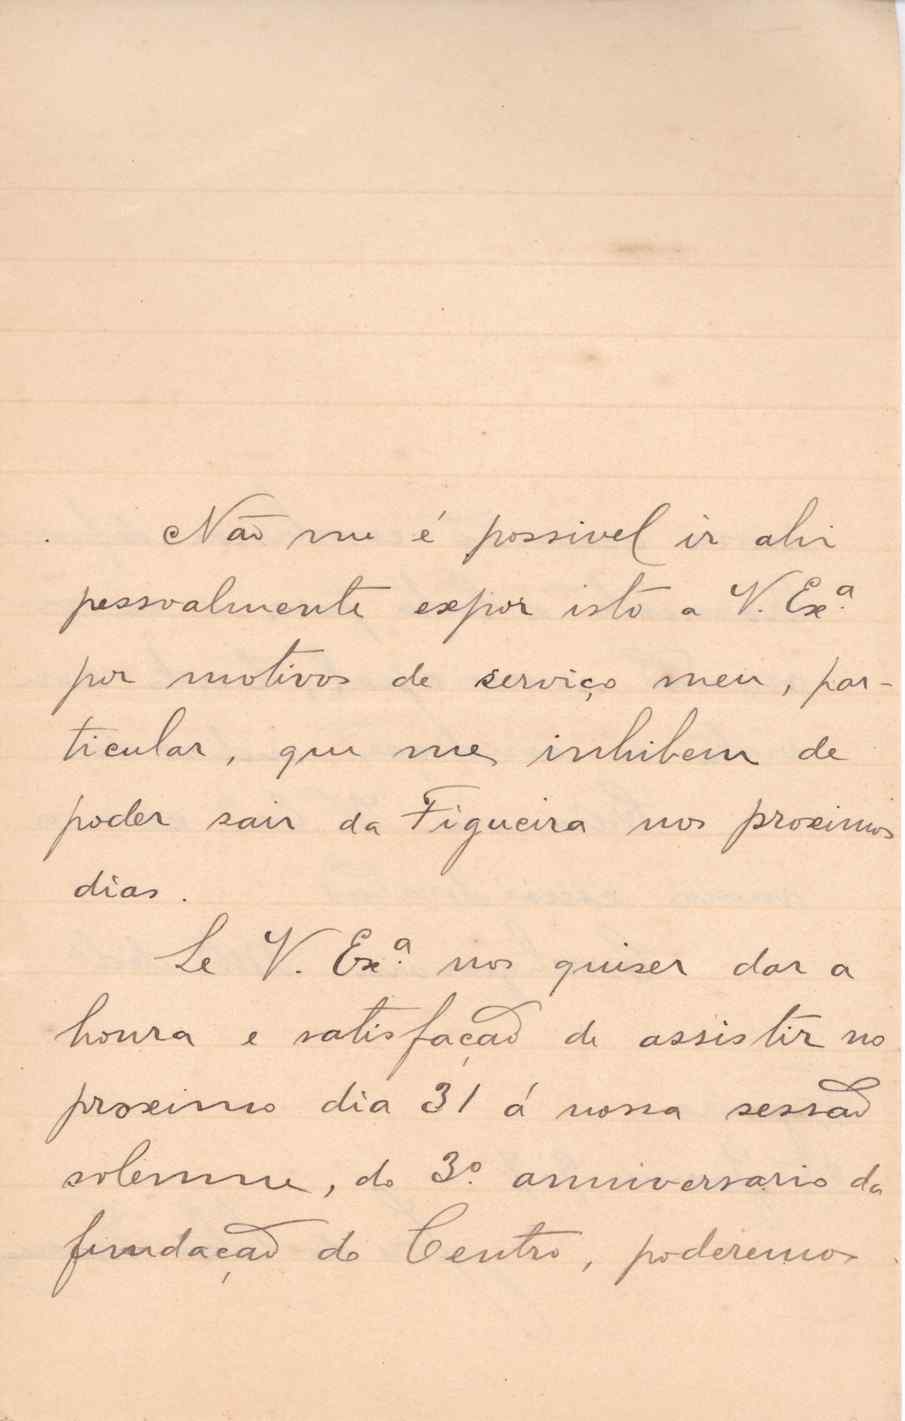 Não me é possivel ir ahi
pessoalmente expor isto a V. Exª.
por motivos de serviço meu, par-
ticular, que me inhibem de
poder sair da Figueira nos proximos
dias.
Se V. Exª. nos quiser dar a
honra e satisfação de assistir no
proximo dia 31 á nossa sessão
solemne, do 3º. anniversario da
fundação do Centro, poderemos